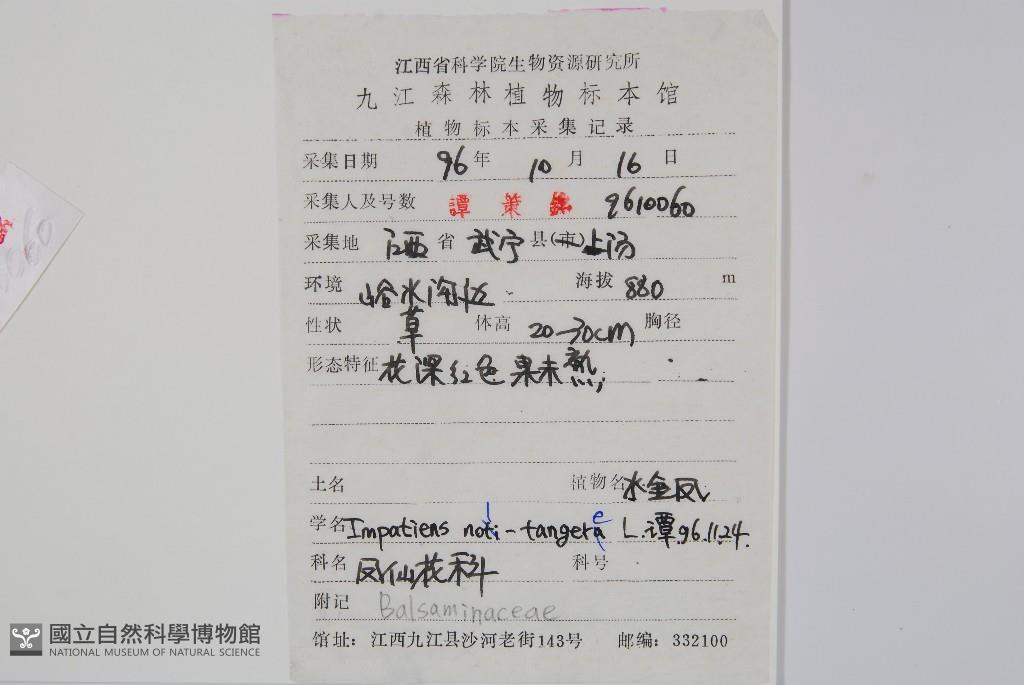 江西省科学院生物资源研究所
九江森林植物标本馆
植物标本采集记录
采集日期 96年 10月 16日
采集人及号数 譚策铭 9610060
采集地 江西省 武宁县(市)上汤
环境 水沟边 海拔 880 m
性状 草 体高 20-30cm 胸径
形态特征 花深红色果未熟;
土名 植物名 水金凤
学名 Impatiens noti-tangera L. 谭 96.11.24.
科名 凤仙花科 科号
附记 Balsaminaceae
馆址：江西九江县沙河老街143号 邮编：332100
國立自然科學博物館
NATIONAL MUSEUM OF NATURAL SCIENCE